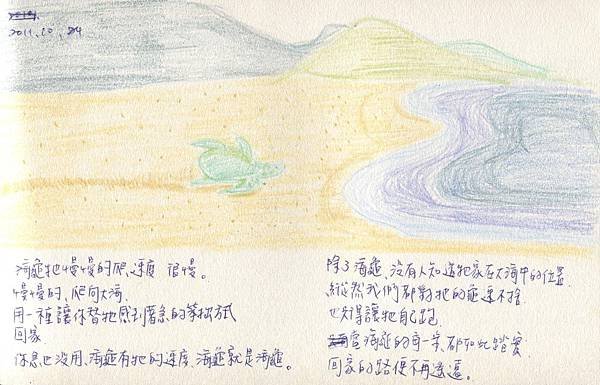 2011.10.24
海龜牠慢慢的爬、速度 很慢。
慢慢的、爬向大海.
用一種讓你替牠感到著急的笨拙方式
回家
你急也沒用、海龜有牠的速度、海龜就是海龜。
除了海龜、沒有人知道牠家在大海中的位置.
縱然我們都對牠的癡迷不捨
也只得讓牠自己跑
當海龜的每一步都如此踏實
回家的路便不再遙遠。